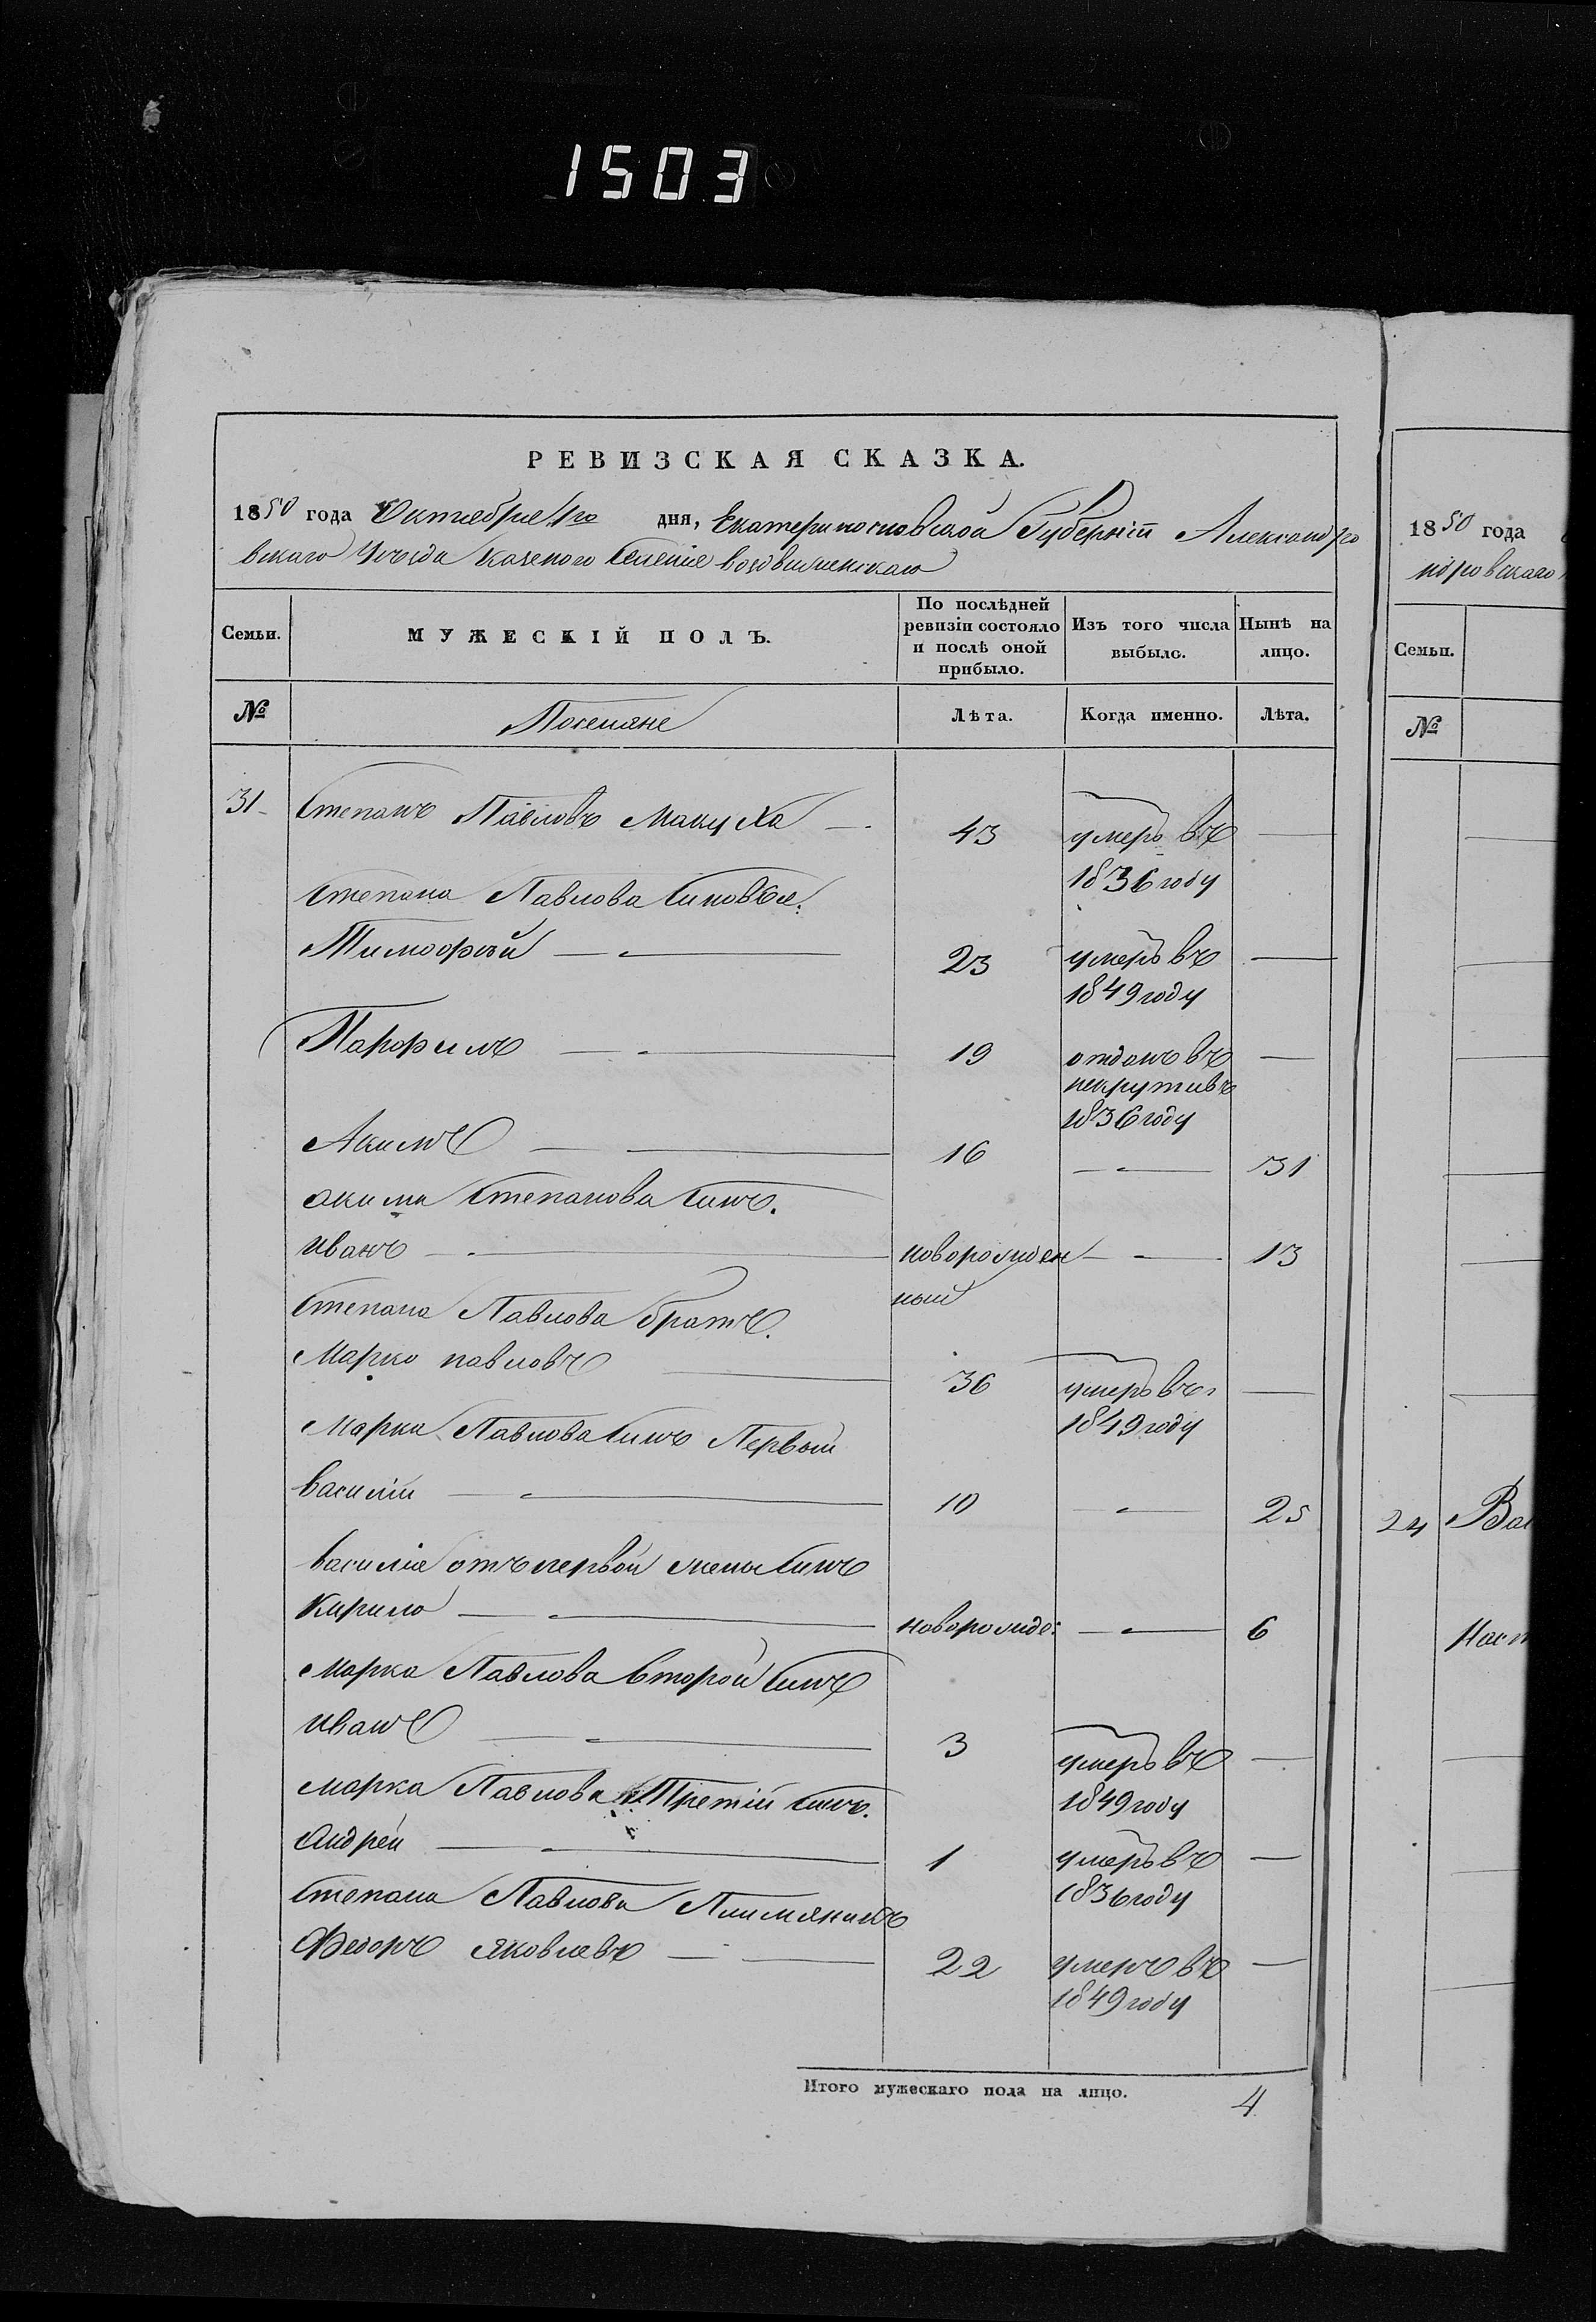 1503
РЕВИЗСКАЯ СКАЗКА.
1850 года Октебрие 1го дня, Екатеринословской Губерніи Александро
вскаго Уѣзда казеного Селеніе воздвиженскаго
Семьи.
МУЖЕСКІЙ ПОЛЪ.
По послѣдней ревизіи состояло и послѣ оной прибыло.
Изъ того числа выбыло.
Нынѣ на лицо.
№
Поселяне
Лѣта.
Когда именно.
Лѣта.
31 Степанъ Павловъ Макуха 43 умеръ въ
1836 году
Степана Павлова Синовья:
Тимофѣй 23 умеръ въ
1849 году
Парфилъ 19 отданъ въ
некрутивъ
1836 году
Акимъ 16 31
акима Степанова Синъ.
иванъ новорожден 13
ный
Степана Павлова братъ.
Марко павловъ 36 умеръ въ
1849 году
Марка Павлова Синъ Первый
василій 10 25
василія отъ первой жены Синъ
Кирило новорожде: 6
Марка Павлова второй Синъ
иванъ 3 умеръ въ
1849 году
марка Павлова Третій Синъ.
Андрей 1 умеръ въ
1836 году
Степана Павлова Плимяникъ
Федоръ яковлевъ 22 умеръ въ
1849 году
Итого мужескаго пола на лицо. 4
1850 года
ндровскаго
Семьи.
№
24 Ва